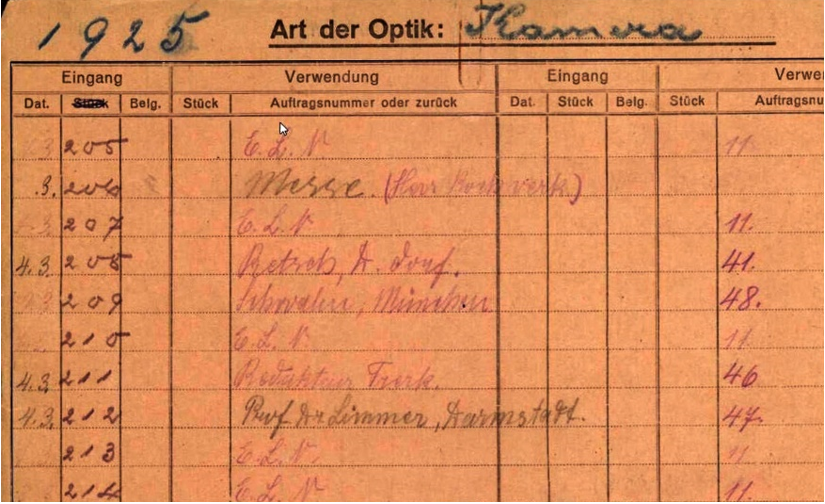 1925 Art der Optik: Kamera
Eingang Verwendung Eingang Verwe
Dat. Stück Belg. Stück Auftragsnummer oder zurück Dat. Stück Belg. Stück Auftragsnu
205 E. L. V 11.
.3. 206 Messe. (Herr
207 E. L. V 11.
4.3. 208 D. dorf. 41.
209 München 48.
210 E. L. V. 11
4.3. 211 46
4.3. 212 Prof Dr Limmer, Darmstadt. 47.
213 E. L. V. 11
214 E. L. V. 11.